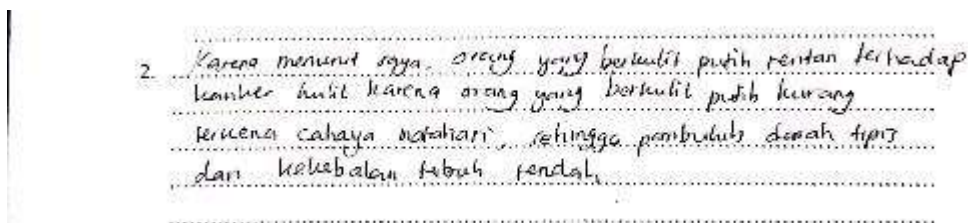 2. Karena menurut saya, orang yang berkulit putih rentan terhadap
kanker kulit karena orang yang berkulit putih kurang
terkena cahaya matahari, sehingga pembuluh darah tipis
dan kekebalan tubuh rendah